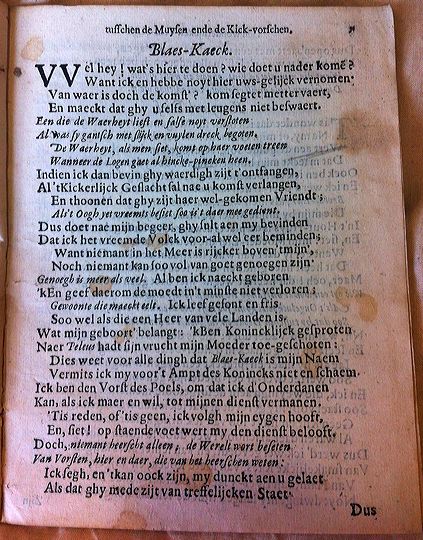 tusschen de Muysen ende de Kick-vorschen.
Blaes-Kaeck.
VVEl hey! wat's hier te doen? wie doet u nader komē?
Want ick en hebbe noyt hier uws-gelijck vernomen.
Van waer is doch de komst? kom segret metter vaert,
En maeckt dat ghy u selfs met leugens niet beswaert.
Een die de Waerheyt liest en salse noyt verstoten
Al was sy gansch met slijck en vuylen dreck begoten.
De Waerheyt, als men siet, komt op haer voeten treen
Wanneer de Logen gaet al hincke-pincken heen.
Indien ick dan bevin ghy waerdigh zijt t'ontfangen,
Al 'tKickerlijck Geslacht sal nae u komst verlangen,
En thoonen dat ghy zijt haer wel-gekomen Vriendt;
Als't Oogh yet vreemts besiet soo is't daer mee gedient.
Dus doet nae mijn begeer, ghy sult aen my bevinden
Dat ick het vreemde Volck voor-al wel eer beminden;
Want niemant in het Meer is rijcker boven 'tmijn,
Noch niemant kan soo vol van goet genoegen zijn:
Genoegh is meer als veel. Al ben ick naeckt geboren
'kEn geef daerom de moedt in't minste niet verloren:
Gewoonte die maeckt eelt. Ick leef gesont en fris
Soo wel als die een Heer van vele Landen is.
Wat mijn geboort' belangt: 'kBen Konincklijck gesproten
Naer Peleus hadt sijn vrucht mijn Moeder toe-geschoten:
Dies weet voor alle dingh dat Blaes-Kaeck is mijn Naem
Vermits ick my voor 't Ampt des Konincks niet en schaem.
Ick ben den Vorst des Poels, om dat ick d'Onderdanen
Kan, als ick maer en wil, tot mijnen dienst vermanen.
'Tis reden, of 'tis geen, ick volgh mijn eygen hooft,
En, siet! op staende voet wert my den dienst belooft.
Doch, niemant heerscht alleen, de Werelt wort beseten
Van Vorsten, hier en daer, die van het heerschen weten:
Ick segh, en 'tkan oock zijn, my dunckt aen u gelaet
Als dat ghy mede zijt van treffelijcken Staet.
Dus